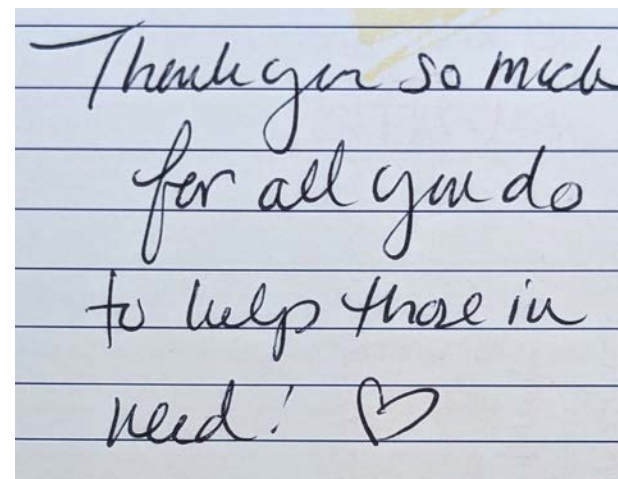 Thank you so much
for all you do
to help those in
need! ♡